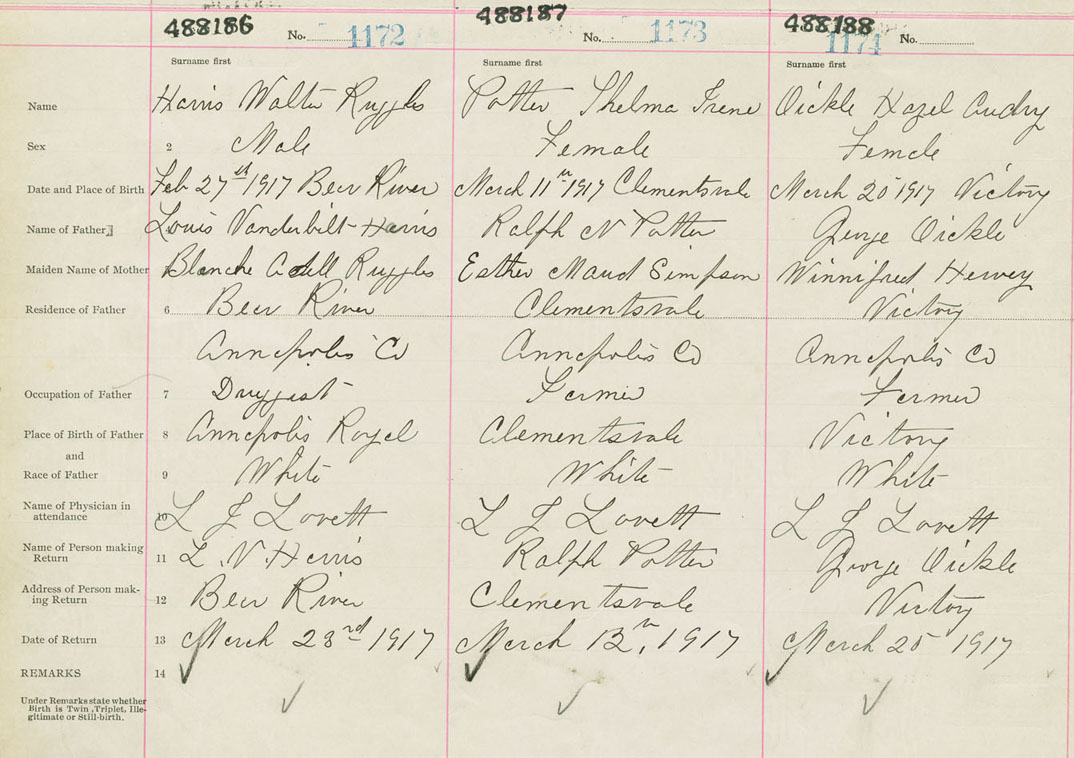 488186 488187 488188
No. 1172 No. 1173 1174 No.
Surname first Surname first Surname first
Name Harris Walter Ruggles Potter Thelma Irene Oickle Hazel Audry
Sex 2 Male Female Female
Date and Place of Birth Feb 27th 1917 Bear River March 11th 1917 Clementsvale March 20 1917 Victory
Name of Father Louis Vanderbilt Harris Ralph N Potter George Oickle
Maiden Name of Mother Blanche Adell Ruggles Esther Maud Simpson Winnifred Hervey
Residence of Father 6 Bear River Clementsvale Victory
Annapolis Co Annapolis Co Annapolis Co
Occupation of Father 7 Druggist Farmer Farmer
Place of Birth of Father 8 Annapolis Royal Clementsvale Victory
and
Race of Father 9 White White White
Name of Physician in
attendance 10 L J Lovett L J Lovett L J Lovett
Name of Person making
Return 11 L. V. Harris Ralph Potter George Oickle
Address of Person mak-
ing Return 12 Bear River Clementsvale Victory
Date of Return 13 March 23rd 1917 March 12th, 1917 March 25 1917
REMARKS 14
Under Remarks state whether
Birth is Twin, Triplet, Ille-
gitimate or Still-birth.